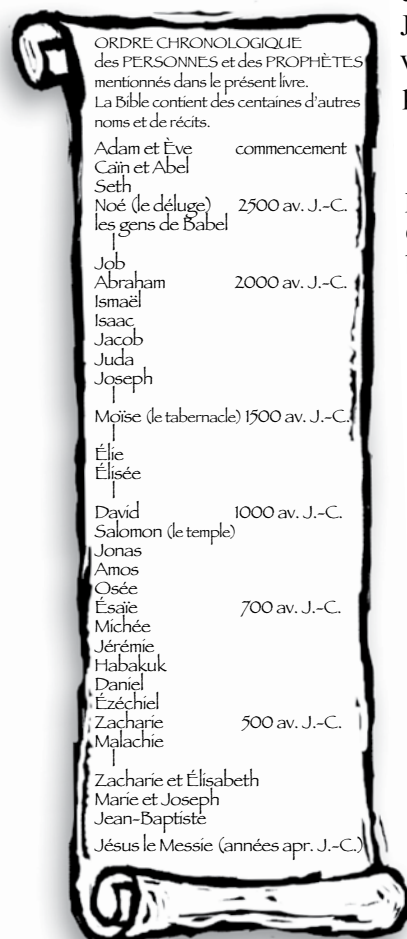 ORDRE CHRONOLOGIQUE
des PERSONNES et des PROPHÈTES
mentionnés dans le présent livre.
La Bible contient des centaines d'autres
noms et de récits.
Adam et Ève commencement
Caïn et Abel
Seth
Noé (le déluge) 2500 av. J.-C.
les gens de Babel
|
Job
Abraham 2000 av. J.-C.
Ismaël
Isaac
Jacob
Juda
Joseph
|
Moïse (le tabernacle) 1500 av. J.-C.
|
Élie
Élisée
|
David 1000 av. J.-C.
Salomon (le temple)
Jonas
Amos
Osée
Ésaïe 700 av. J.-C.
Michée
Jérémie
Habakuk
Daniel
Ézéchiel
Zacharie 500 av. J.-C.
Malachie
|
Zacharie et Élisabeth
Marie et Joseph
Jean-Baptiste
Jésus le Messie (années apr. J.-C.)